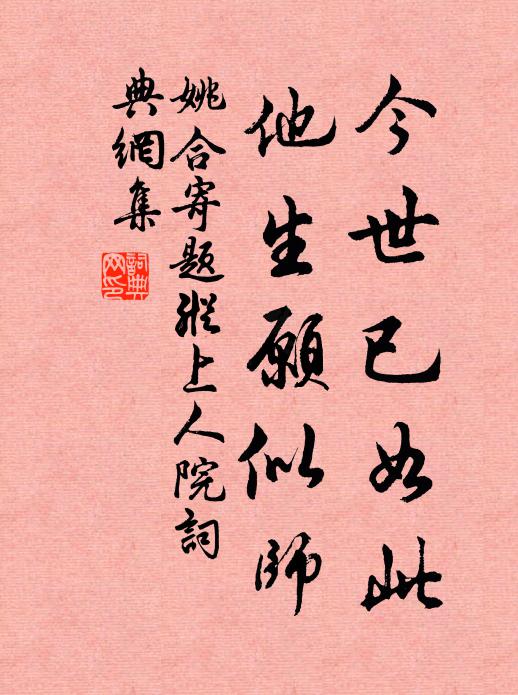 今世已如此
他生願似師
姚合寄題縱上人院詞
典網集
詞典網印